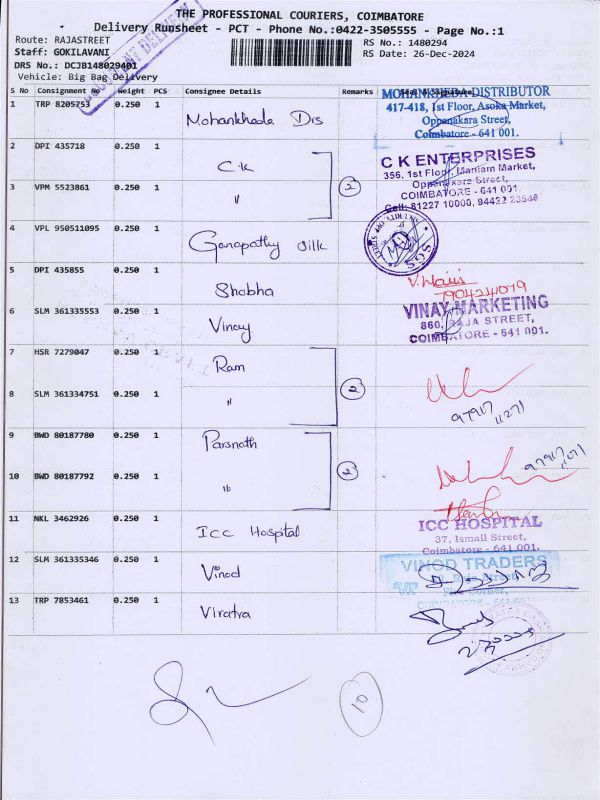 THE PROFESSIONAL COURIERS, COIMBATORE
Delivery Runsheet - PCT - Phone No.:0422-3505555 - Page No.:1
Route: RAJASTREET
RS No.: 1480294
Staff: GOKILAVANI
RS Date: 26-Dec-2024
DRS No.: DCJB148029401
Vehicle: Big Bag Delivery
S No Consignment No Weight PCS Consignee Details Remarks
1 TRP 8205753 0.250 1 Mohankheda Dis
MOHANKHEDA DISTRIBUTOR
417-418, 1st Floor, Asoka Market,
Oppanakara Street,
Coimbatore - 641 001.
2 DPI 435718 0.250 1 CK
3 VPM 5523861 0.250 1 " 2
C K ENTERPRISES
356, 1st Floor, Maniam Market,
Oppanakara Street,
COIMBATORE - 641 001.
Cell: 81227 10000, 94422 23546
4 VPL 950511095 0.250 1 Ganapathy Silk
SGS
5 DPI 435855 0.250 1 Shobha
7904214079
6 SLM 361335553 0.250 1 Vinay
VINAY MARKETING
860, RAJA STREET,
COIMBATORE - 641 001.
7 HSR 7279047 0.250 1 Ram
8 SLM 361334751 0.250 1 " 2
9 BWD 80187780 0.250 1 Parsnath
10 BWD 80187792 0.250 1 " 2
11 NKL 3462926 0.250 1 ICC Hospital
ICC HOSPITAL
37, Ismail Street,
Coimbatore - 641 001.
12 SLM 361335346 0.250 1 Vinod
VINOD TRADERS
13 TRP 7853461 0.250 1 Viratra
10